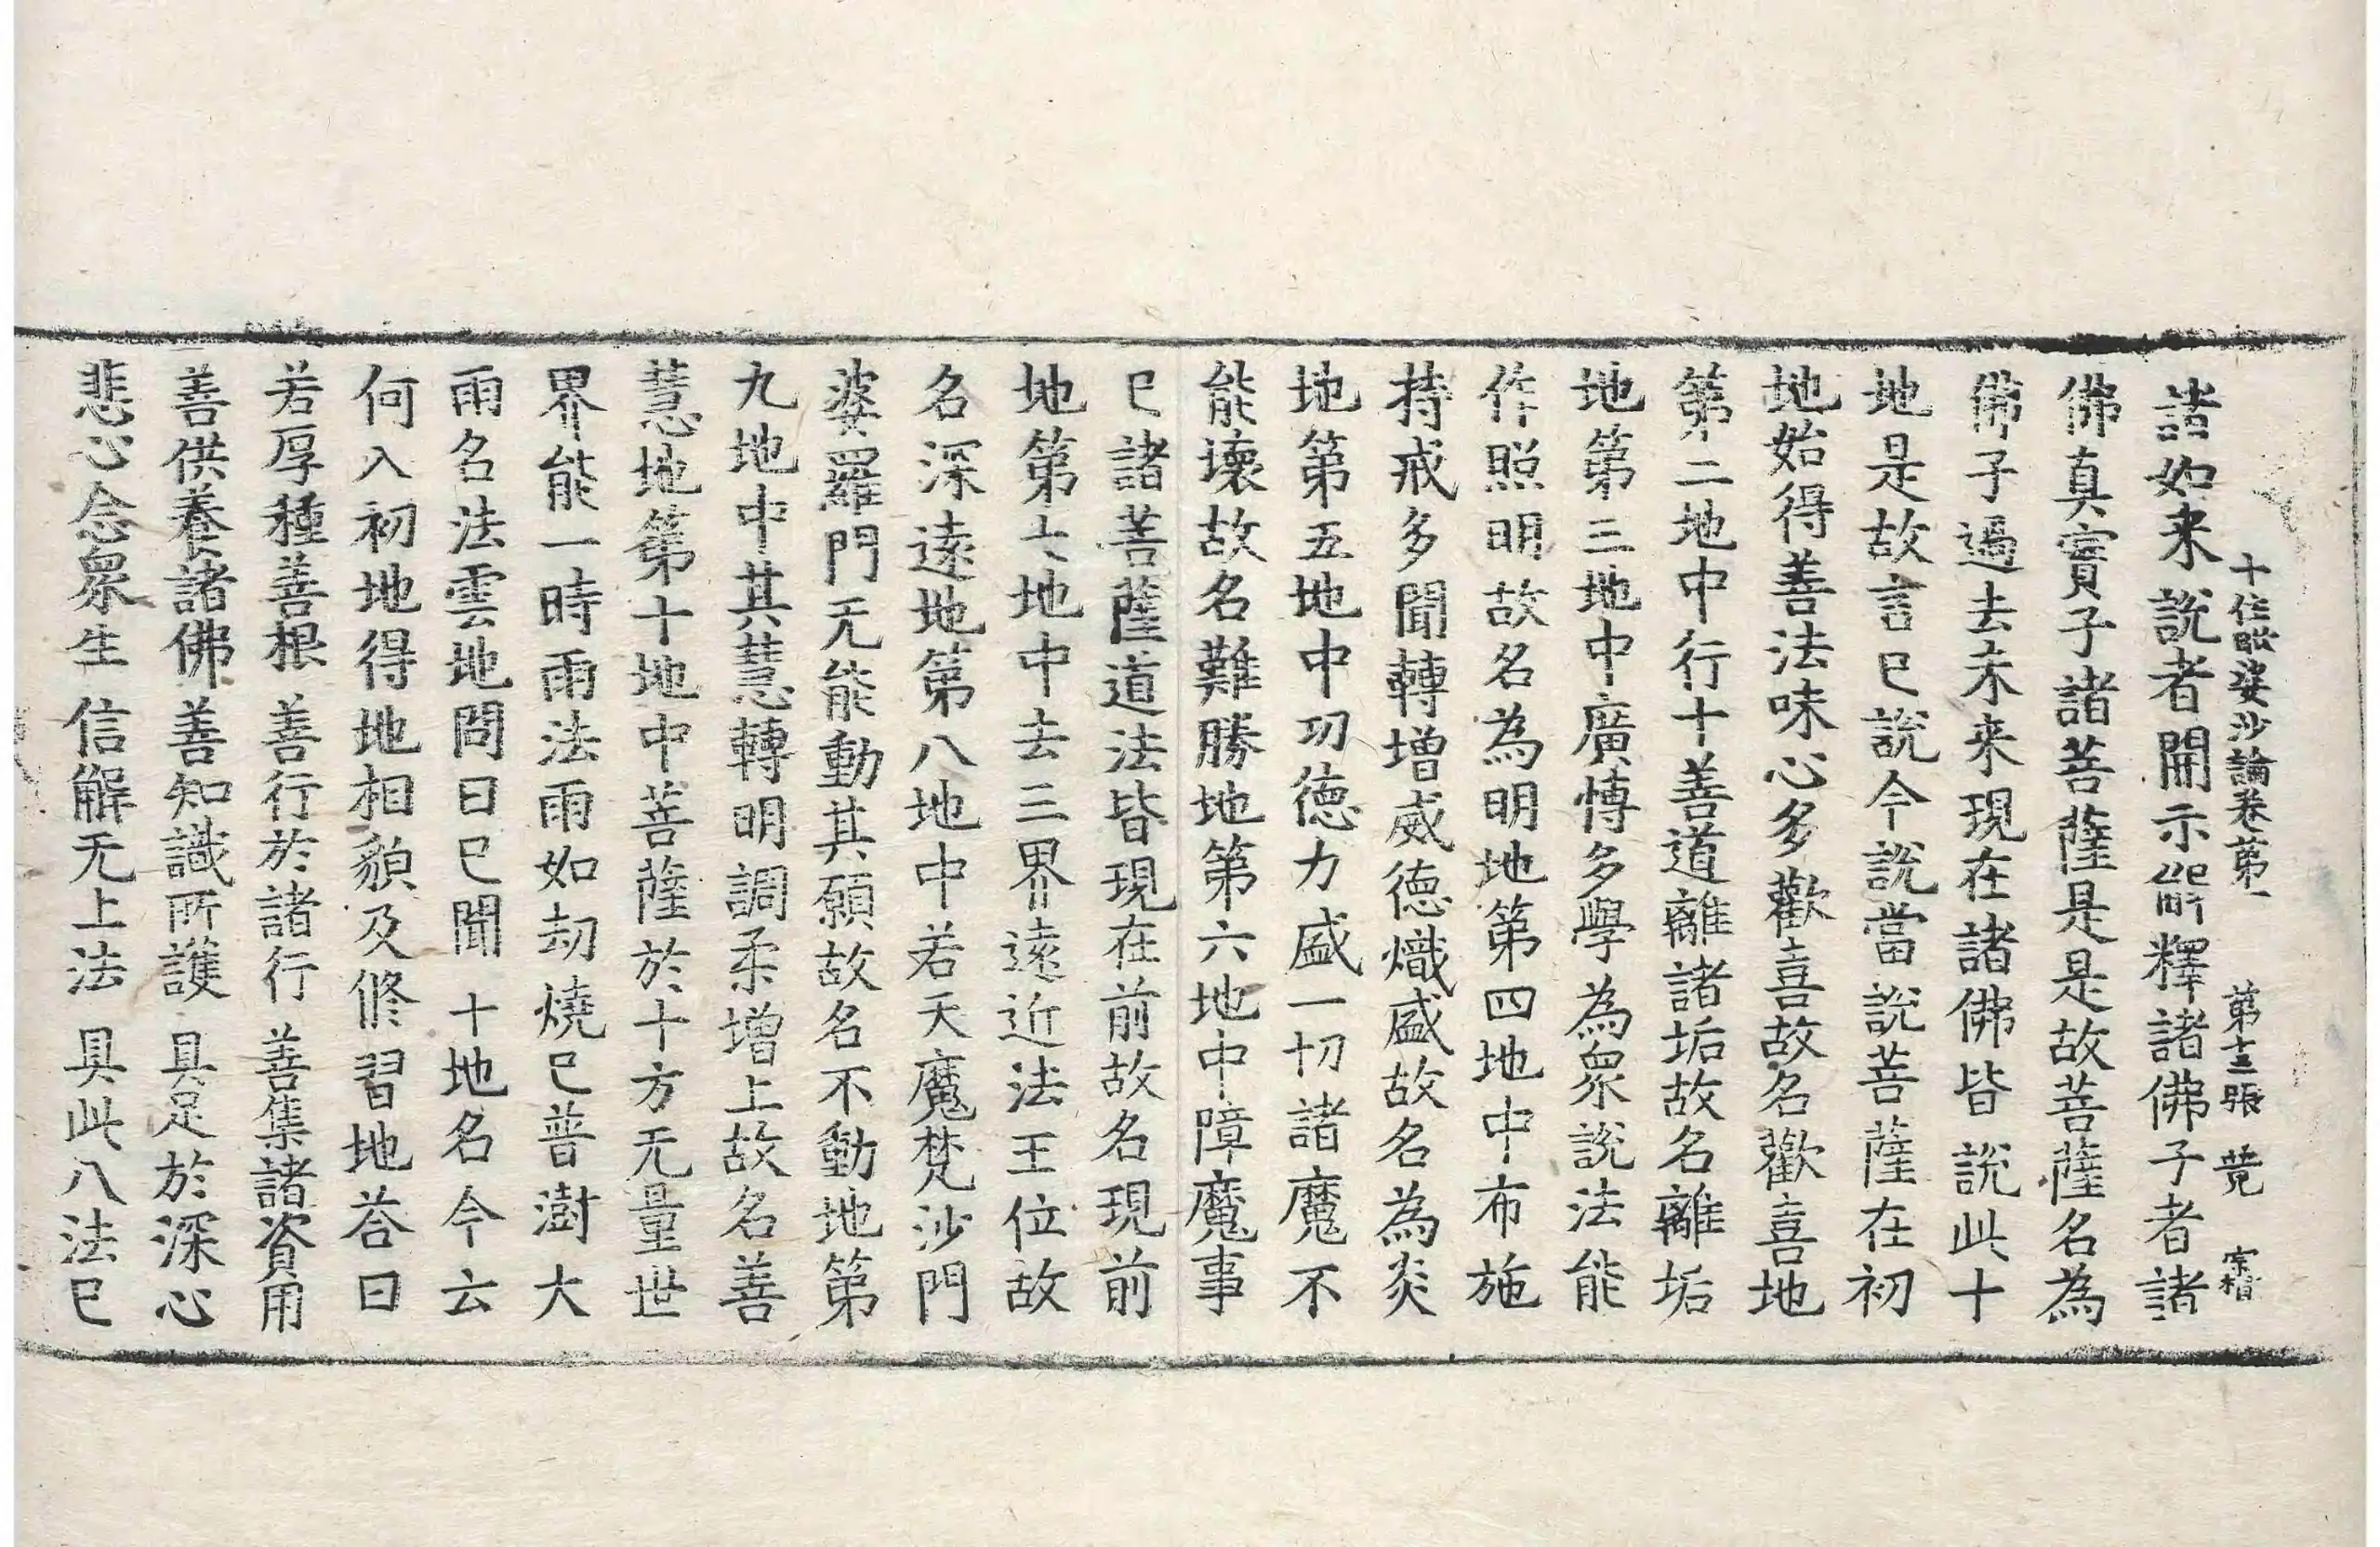 十住毗婆沙論卷第一 第十三張 竟 宗楷
諸如来説者開示觧釋諸佛子者諸
佛真實子諸菩薩是是故菩薩名為
佛子過去未来現在諸佛皆説此十
地是故言已説今説當説菩薩在初
地始得善法味心多歡喜故名歡喜地
第二地中行十善道離諸垢故名離垢
地第三地中廣愽多學為衆説法能
作照明故名為明地第四地中布施
持戒多聞轉增威德熾盛故名為炎
地第五地中功德力盛一切諸魔不
能壞故名難勝地第六地中障魔事
已諸菩薩道法皆現在前故名現前
地第七地中去三界遠近法王位故
名深遠地第八地中若天魔梵沙門
婆羅門无能動其願故名不動地第
九地中其慧轉明調柔增上故名善
慧地第十地中菩薩於十方无量世
界能一時雨法雨如劫燒已普澍大
雨名法雲地問曰已聞十地名今云
何入初地得地相貌及修習地荅曰
若厚種善根 善行於諸行 善集諸資用
善供養諸佛 善知識所護 具足於深心
悲心念衆生 信解无上法 具此八法已